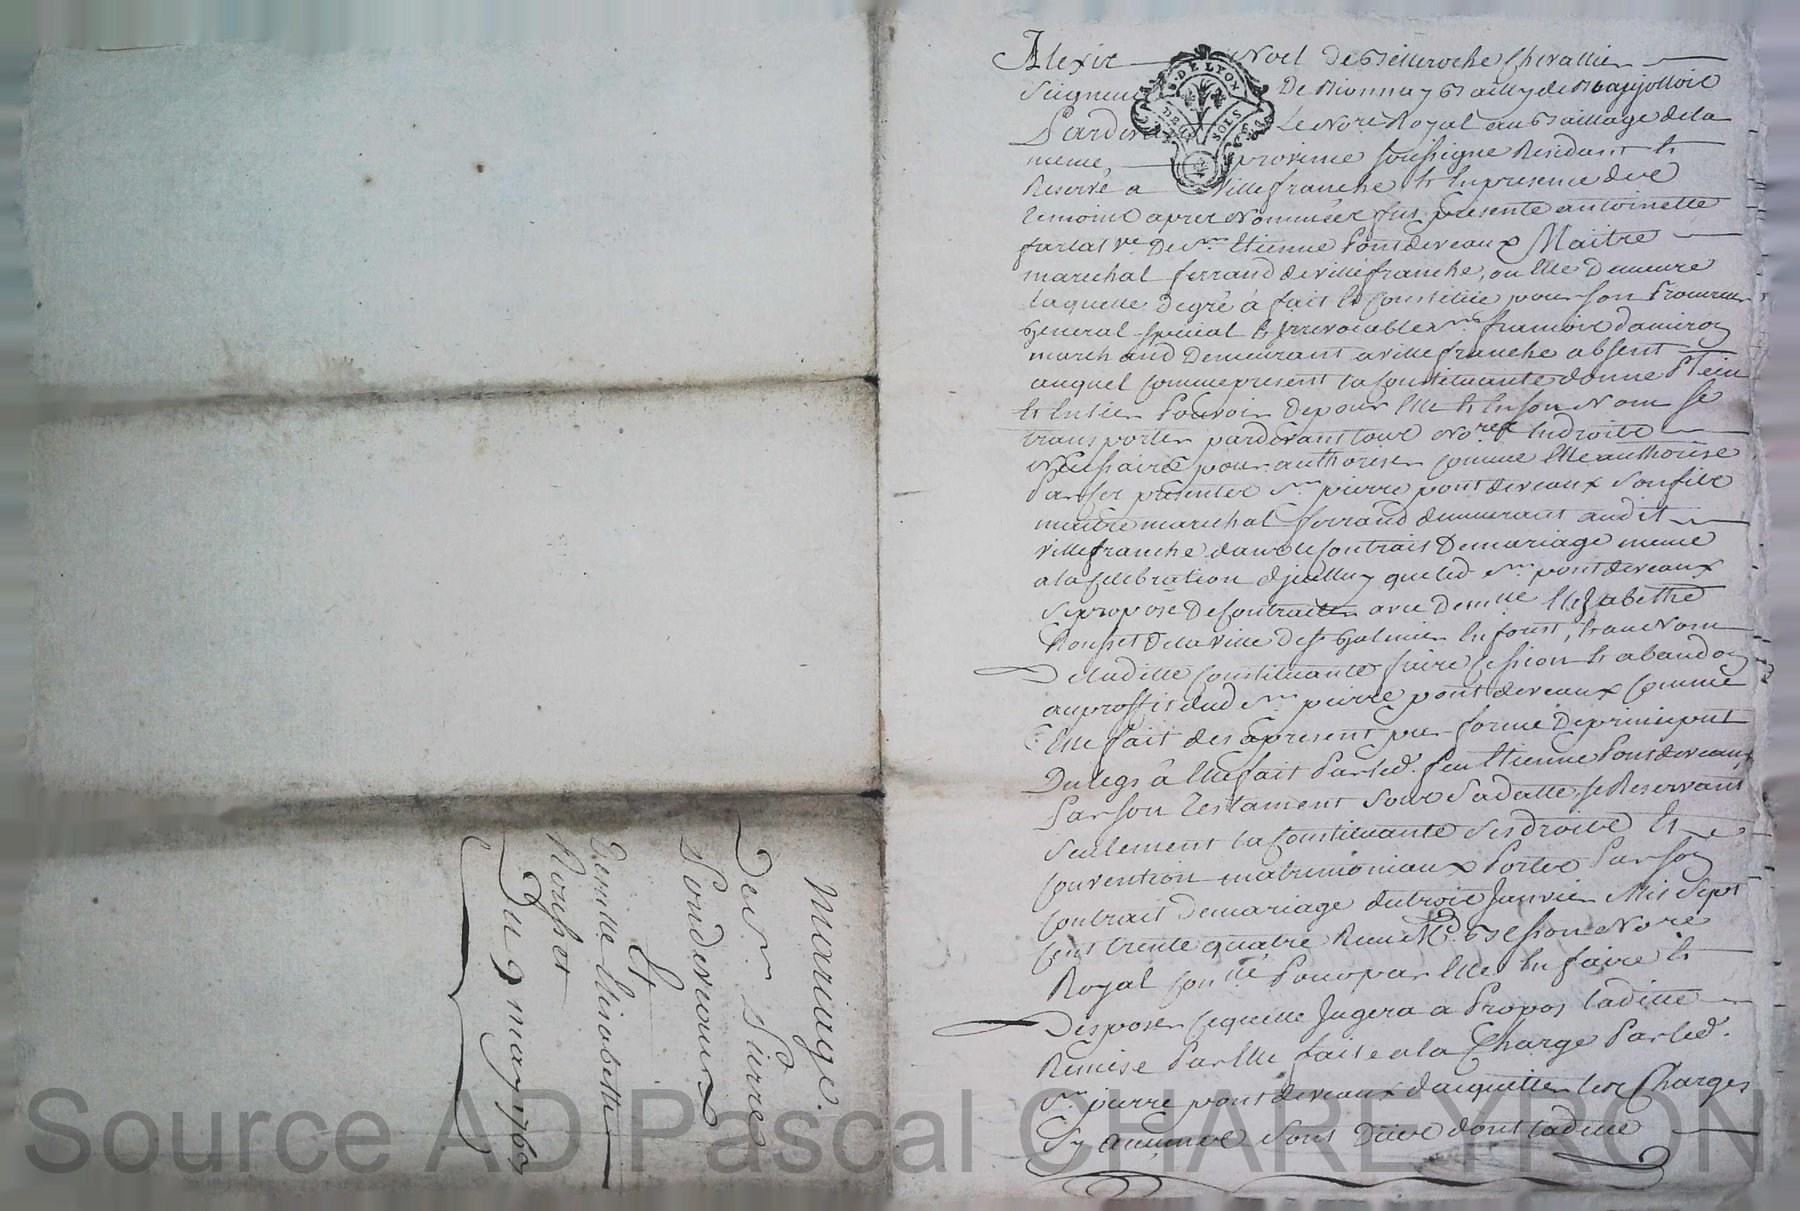 Mariage.
De sr Pierre
Pondeveaux
Et
Demlle Elisabette
Rousset
Du 9 may 1760
Alexis Noel De Belleroche Chevallier
Seigneur De Bionnay Bailly de Baujollois
Pardevant Le Nore Royal au Baillage de la
meme, province soussigné Residant et
Reservé a Villefranche et En presence des
temoins apres Nommées fut presente antoinette
farlat Ve De sr Etienne Pontdeveaux Maitre
marechal ferrand de villefranche, ou Elle Demeure
laquelle De gré à fait et Constitué pour son Procureur
General special et Irrevocable sr francois damiron
marchand Demeurant a villefranche absent
auquel comme present la Constituante donne Plein
et Entier Pouvoir De pour Elle et En son Nom se
transporter pardevant tous Nores Endroits
Necessaires pour authoriser comme Elle authorise
Par ses presentes sr pierre pontdeveaux son fils
maitre marechal ferrand demeurant audit
villefranche dans le Contrait De mariage meme
a la Celebration d'jcelluy que led sr pontdeveaux
se propose De Contraiter avec Demlle Elizabethe
Rousset De la ville De st Galmier En forest, Et au Nom
De laditte Constituante faire Cession et abandon
au proffit dud sr pierre pontdeveaux comme
Elle fait des apresent par forme De principut
Du legs à Elle fait Par led. feu Etienne Pontdeveaux
Par son testament sous sa datte, se Reservant
seulement la Constituante ses droits Et
Convention matrimoniaux Portes Par son
Contrait De mariage du trois Janvier Mil sept
Cent trente quatre Recu Me Bession Nore
Royal Pour par Elle En faire Et
Desposer Ce quelle Jugera a Propos laditte
Remise Par Elle faite a la Charge Par led.
sr pierre pontdeveaux d'acquitter les Charges
sy aucunes sont Dües dont ladite
G. DE LYON
DEUX SOLS
Source AD Pascal CHAREYRON